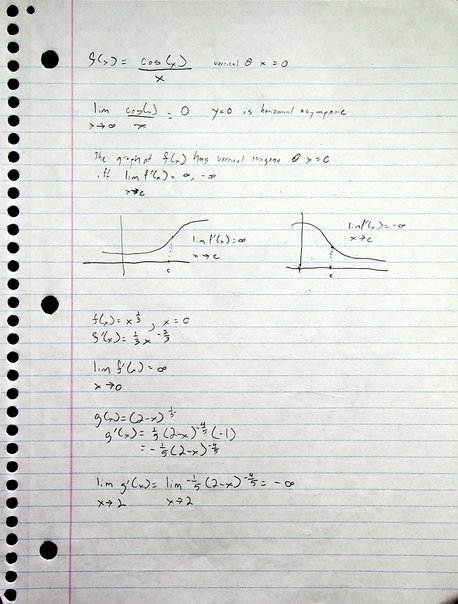 f(x) = cos(x)/x vertical @ x = 0
lim x→∞ cos(x)/x = 0 y=0 is horizontal asymptote
The graph of f(x) has vertical tangent @ x = c
iff lim x→c f'(x) = ∞, -∞
lim f'(x) = ∞ x→c
c
lim f'(x) = -∞ x→c
c
f(x) = x^(1/3), x = 0
f'(x) = 1/3 x^(-2/3)
lim f'(x) = ∞
x→0
g(x) = (2-x)^(1/5)
g'(x) = 1/5 (2-x)^(-4/5) (-1)
= -1/5 (2-x)^(-4/5)
lim g'(x) = lim -1/5 (2-x)^(-4/5) = -∞
x→2 x→2